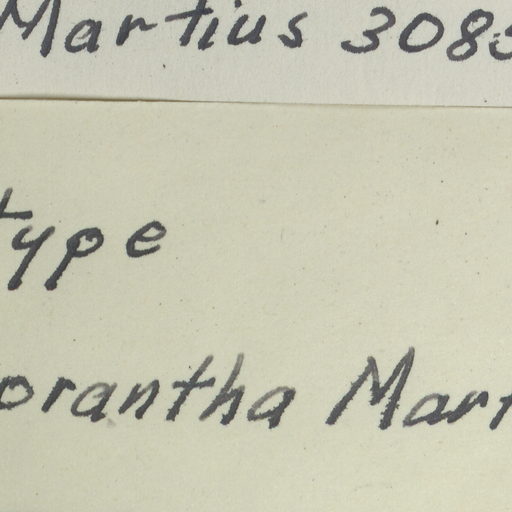 Martius 3085
type
orantha Mart